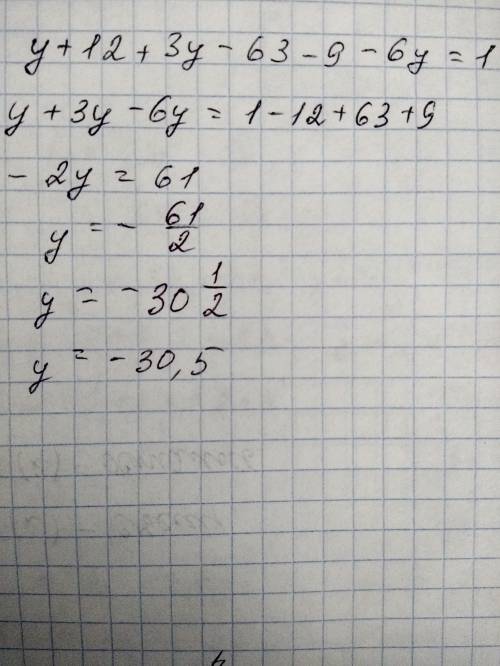 y + 12 + 3y - 63 - 9 - 6y = 1
y + 3y - 6y = 1 - 12 + 63 + 9
- 2y = 61
y = - 61/2
y = - 30 1/2
y = - 30,5